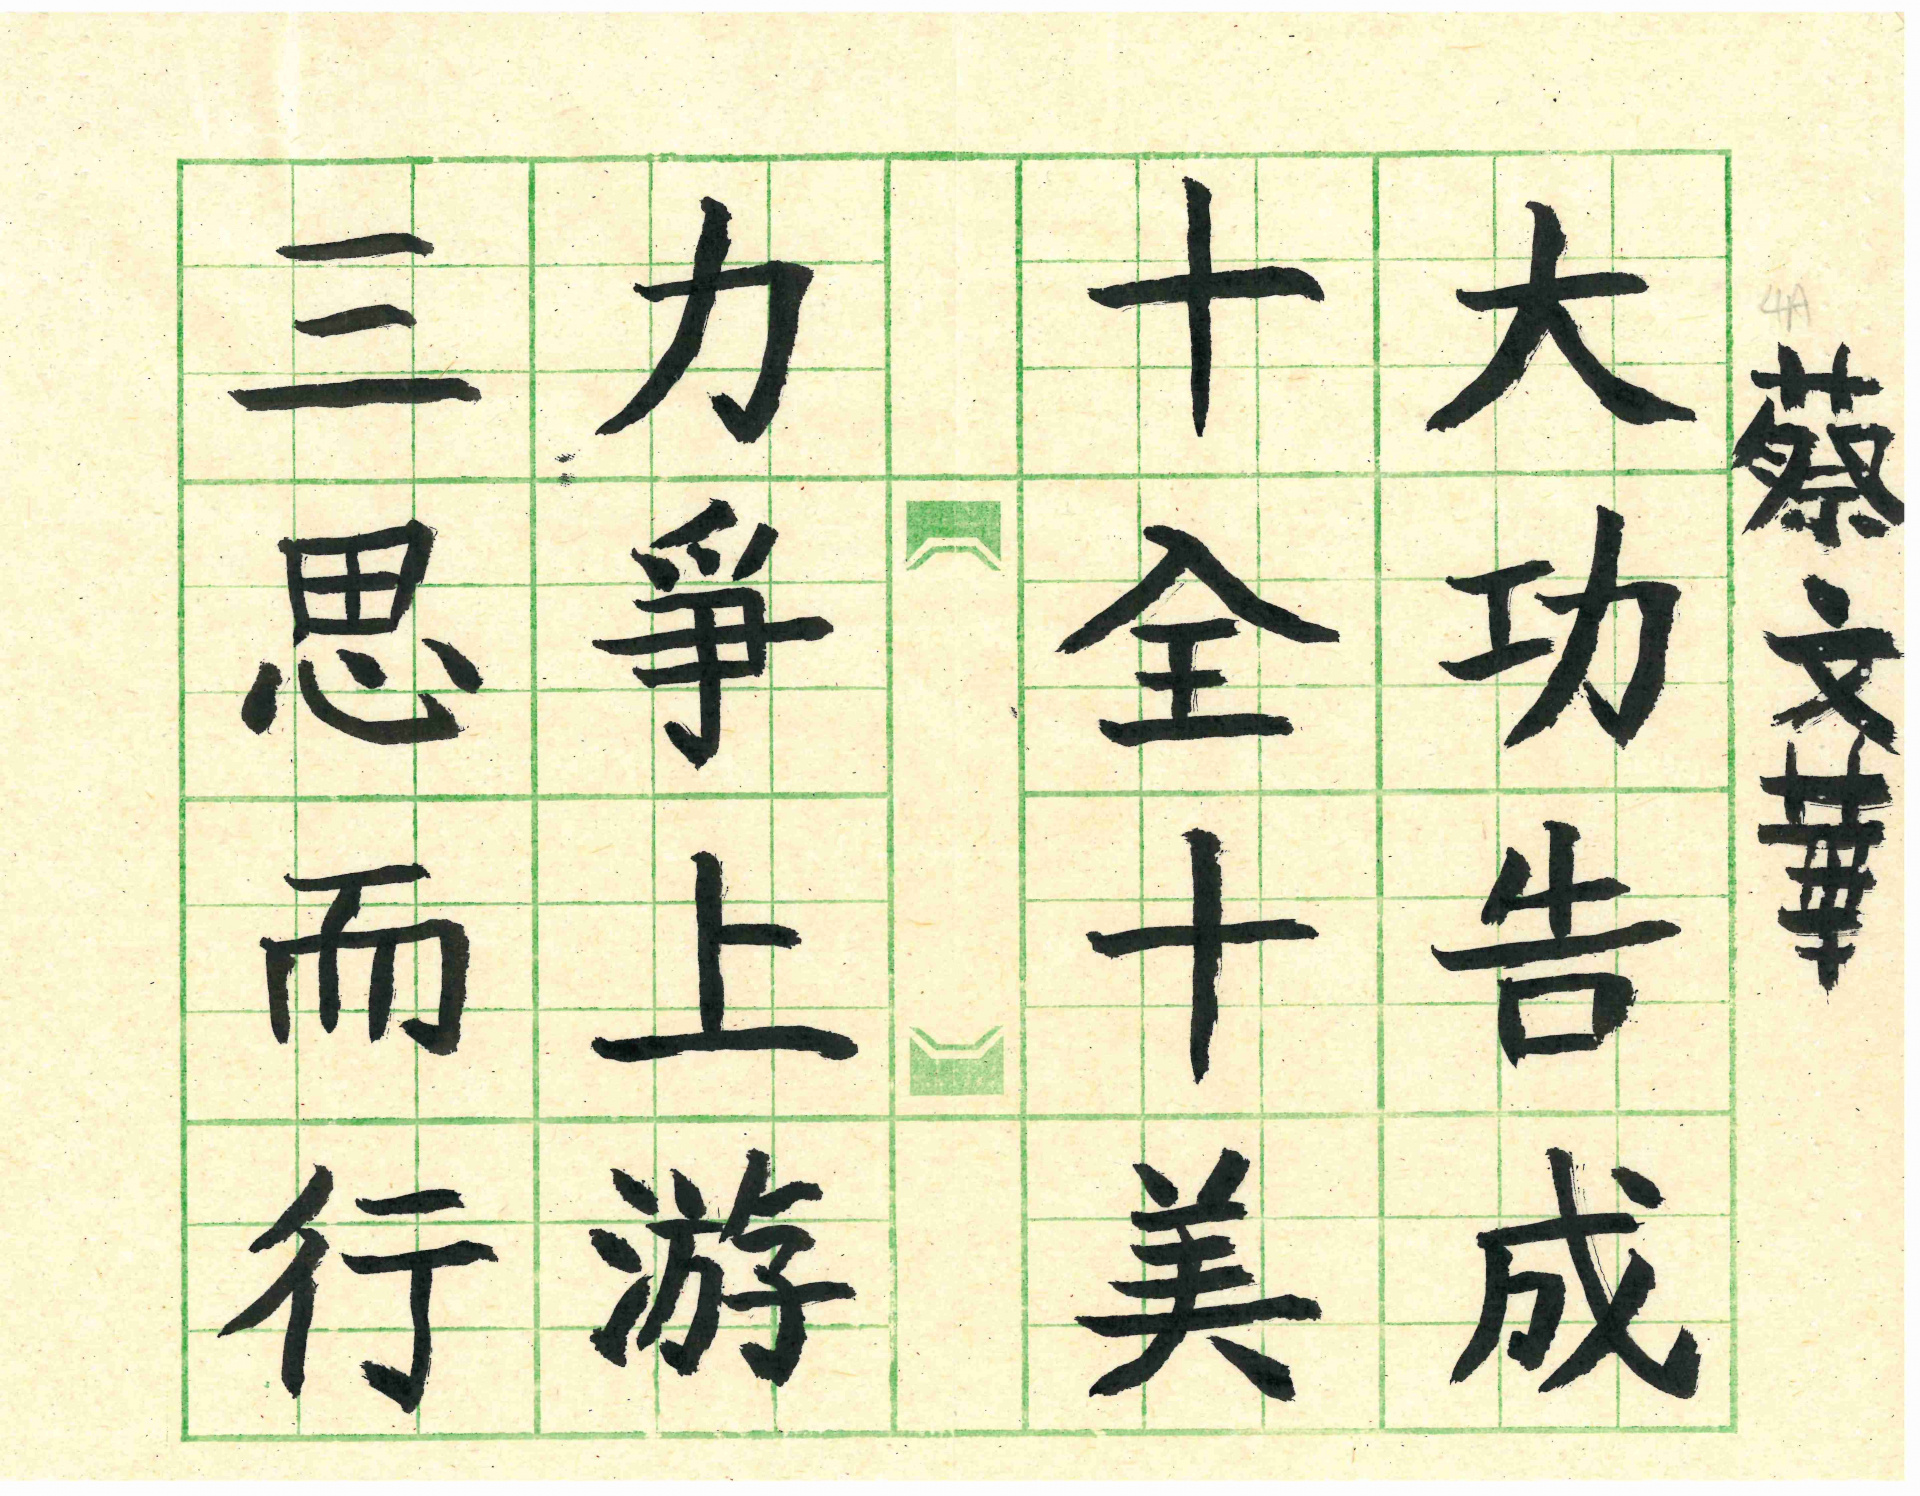 4A
蔡文華
大功告成
十全十美
力爭上游
三思而行